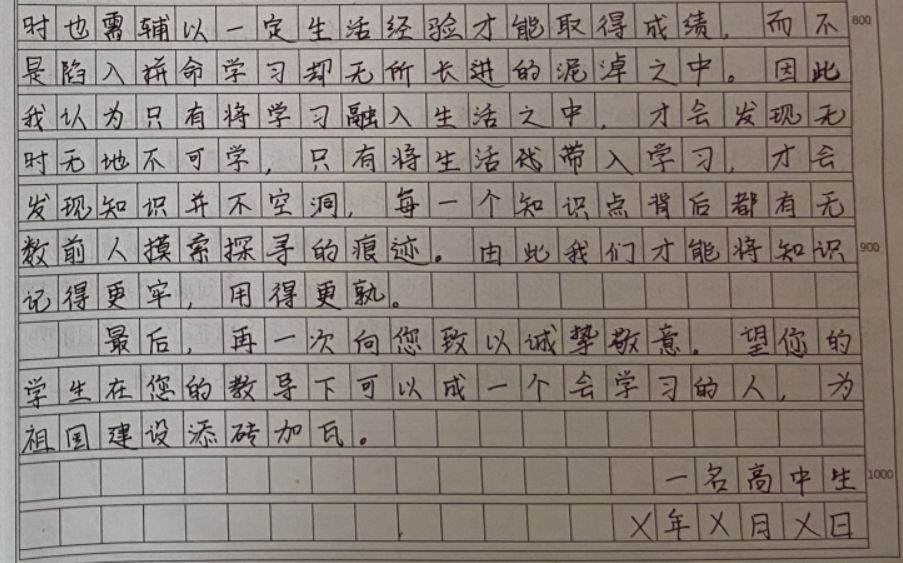 时也需辅以一定生活经验才能取得成绩，而不 800
是陷入拼命学习却无所长进的泥淖之中。因此
我认为只有将学习融入生活之中，才会发现无
时无地不可学，只有将生活代带入学习，才会
发现知识并不空洞，每一个知识点背后都有无
数前人摸索探寻的痕迹。由此我们才能将知识 900
记得更牢，用得更熟。
最后，再一次向您致以诚挚敬意。望你的
学生在您的教导下可以成一个会学习的人，为
祖国建设添砖加瓦。
一名高中生 1000
X年X月X日